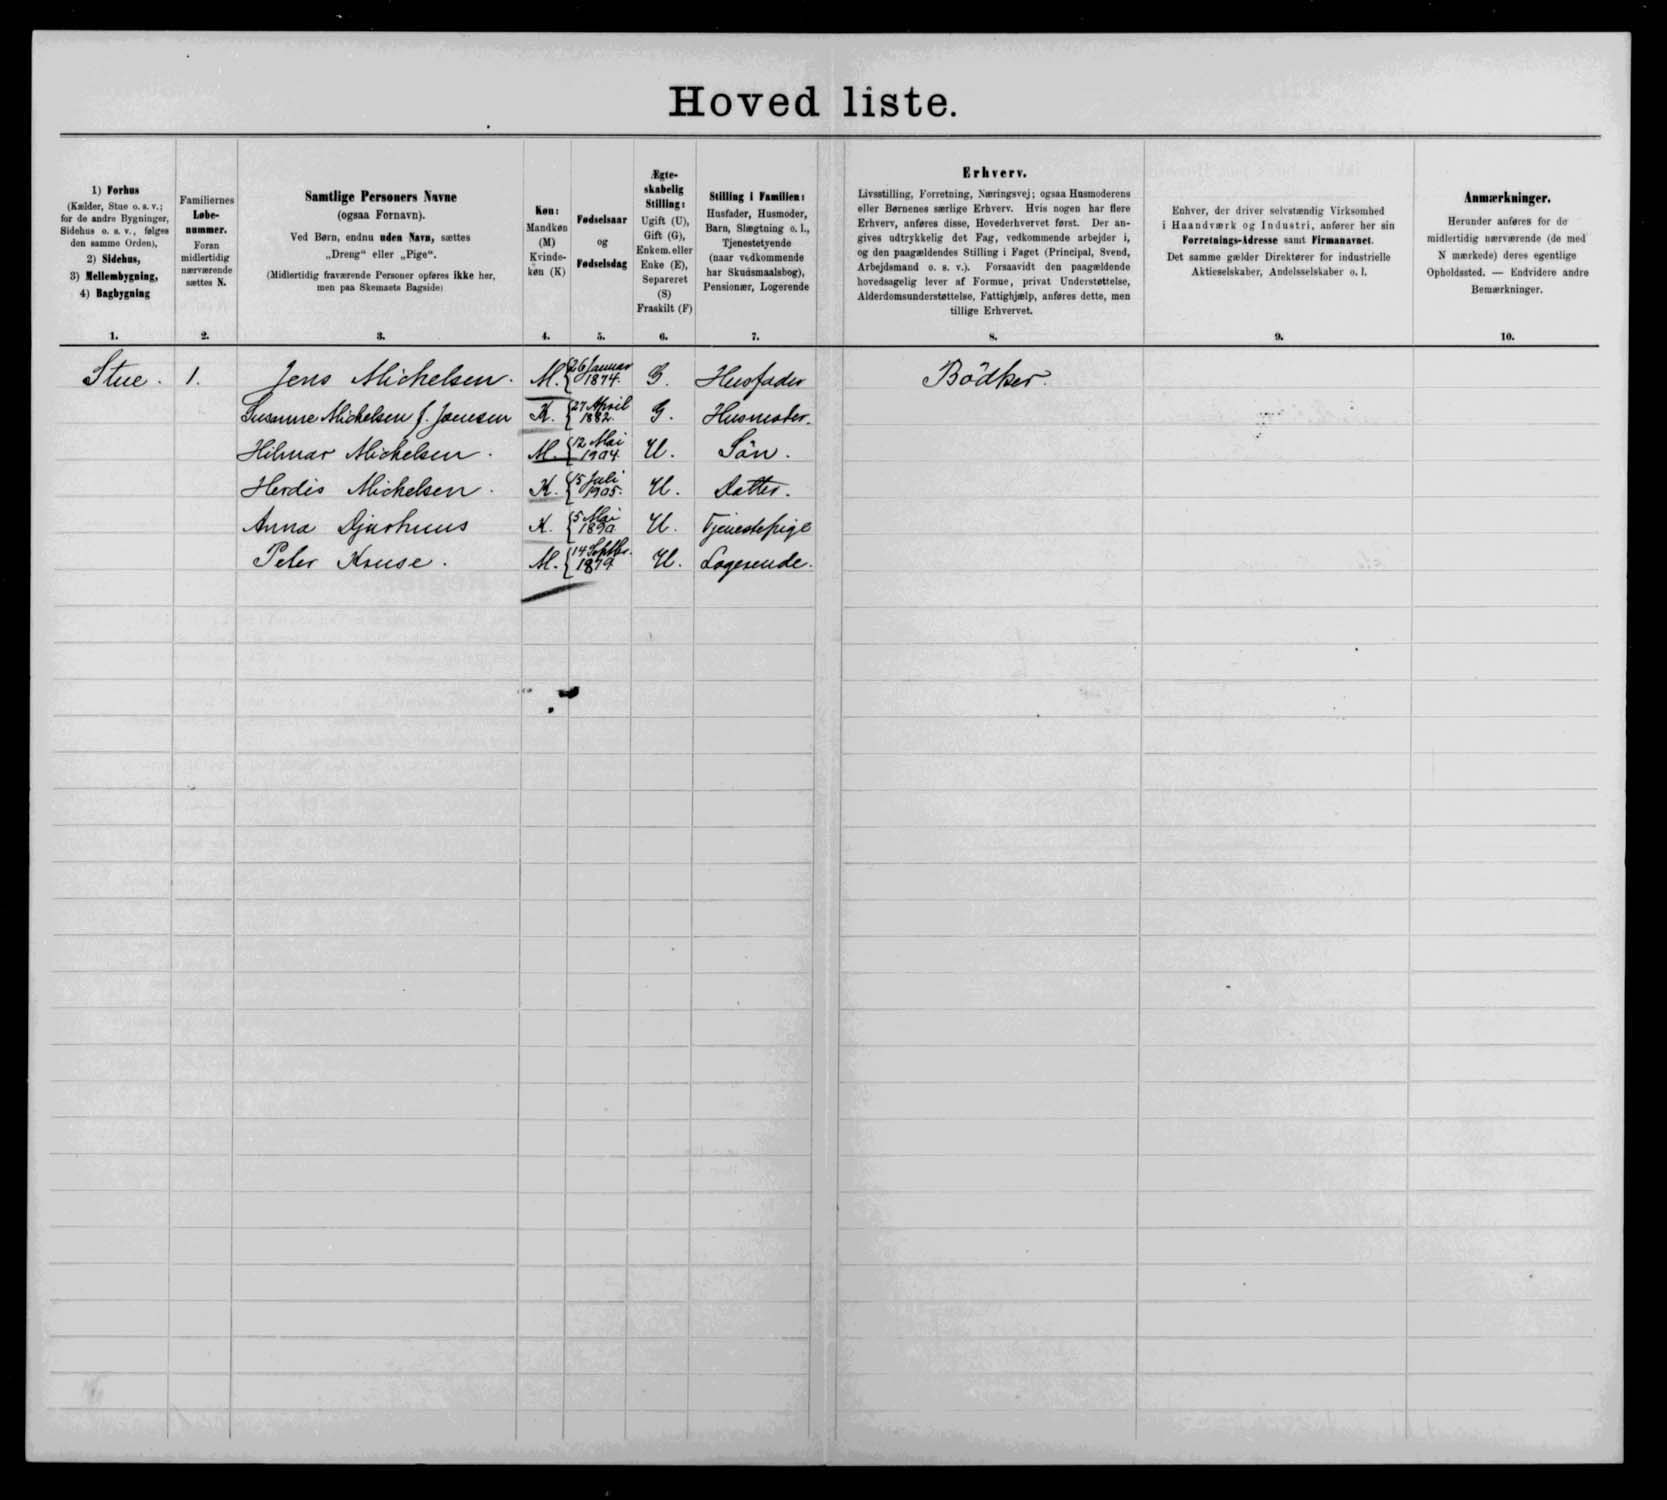 Hovedliste.
1) Forhus
(Kælder, Stue o. s. v.;
for de andre Bygninger,
Sidehus o. s. v., følges
den samme Orden),
2) Sidehus,
3) Mellembygning,
4) Bagbygning
1.
Familiernes
Løbe-
nummer.
Foran
midlertidig
nærværende
sættes N.
2.
Samtlige Personers Navne
(ogsaa Fornavn).
Ved Børn, endnu uden Navn, sættes
„Dreng" eller „Pige".
(Midlertidig fraværende Personer opføres ikke her,
men paa Skemaets Bagside)
3.
Køn:
Mandkøn
(M)
Kvinde-
køn (K)
4.
Fødselsaar
og
Fødselsdag
5.
Ægte-
skabelig
Stilling:
Ugift (U),
Gift (G),
Enkem. eller
Enke (E),
Separeret
(S)
Fraskilt (F)
6.
Stilling i Familien:
Husfader, Husmoder,
Barn, Slægtning o. l.,
Tjenestetyende
(naar vedkommende
har Skudsmaalsbog),
Pensionær, Logerende
7.
Erhverv.
Livsstilling, Forretning, Næringsvej; ogsaa Husmoderens
eller Børnenes særlige Erhverv. Hvis nogen har flere
Erhverv, anføres disse, Hovederhvervet først. Der an-
gives udtrykkelig det Fag, vedkommende arbejder i,
og den paagældendes Stilling i Faget (Principal, Svend,
Arbejdsmand o. s. v.). Forsaavidt den paagældende
hovedsagelig lever af Formue, privat Understøttelse,
Alderdomsunderstøttelse, Fattighjælp, anføres dette, men
tillige Erhvervet.
8.
Enhver, der driver selvstændig Virksomhed
i Haandværk og Industri, anfører her sin
Forretnings-Adresse samt Firmanavnet.
Det samme gælder Direktører for industrielle
Aktieselskaber, Andelsselskaber o. l.
9.
Anmærkninger.
Herunder anføres for de
midlertidig nærværende (de med
N mærkede) deres egentlige
Opholdssted. — Endvidere andre
Bemærkninger.
10.
Stue. 1. Jens Michelsen. M. 26 Januar 1874. G. Husfader Bödker.
Susanne Michelsen f. Joensen K. 27 April 1882. G. Husmoder.
Hilmar Michelsen. M. 12 Mai 1904. U. Sön.
Herdis Michelsen. K. 15 Juli 1905. U. Datter.
Anna Djurhuus K. 5 Mai 1890 U. Tjenestepige
Peter Kruse. M. 14 Septbr. 1879 U. Logerende.